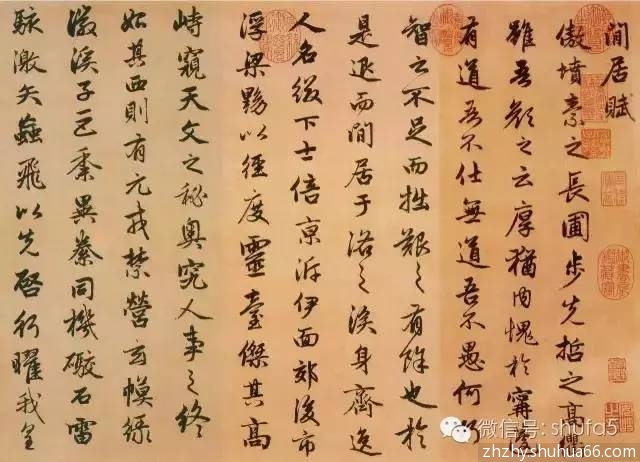 閒居賦
傲墳素之長圃步先哲之高衢
雖吾顏之云厚猶內愧於甯蘧
有道吾不仕無道吾不愚何巧
智之不足而拙艱之有餘也於
是退而閒居于洛之涘身齊逸
人名綴下士倍京泝伊面郊後市
浮梁黝以徑度靈臺傑其高
峙窺天文之秘奧究人事之終
始其西則有元戎禁營玄幙綠
徽溪子巨黍異絭同機礮石雷
駭激矢蝱飛以先啓行曜我皇
微信号: shufa5
zhzhy.shuhua66.com